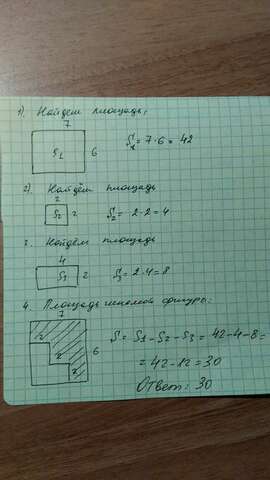 1). Найдем площадь:
7
S1 6 S1 = 7·6 = 42
2) Найдём площадь
2
S2 2 S2 = 2·2 = 4
3. Найдём площадь
4
S3 2 S3 = 2·4 = 8
4. Площадь искомой фигуры:
7
2 2 2 6 S = S1 - S2 - S3 = 42-4-8=
= 42-12 = 30
Ответ: 30